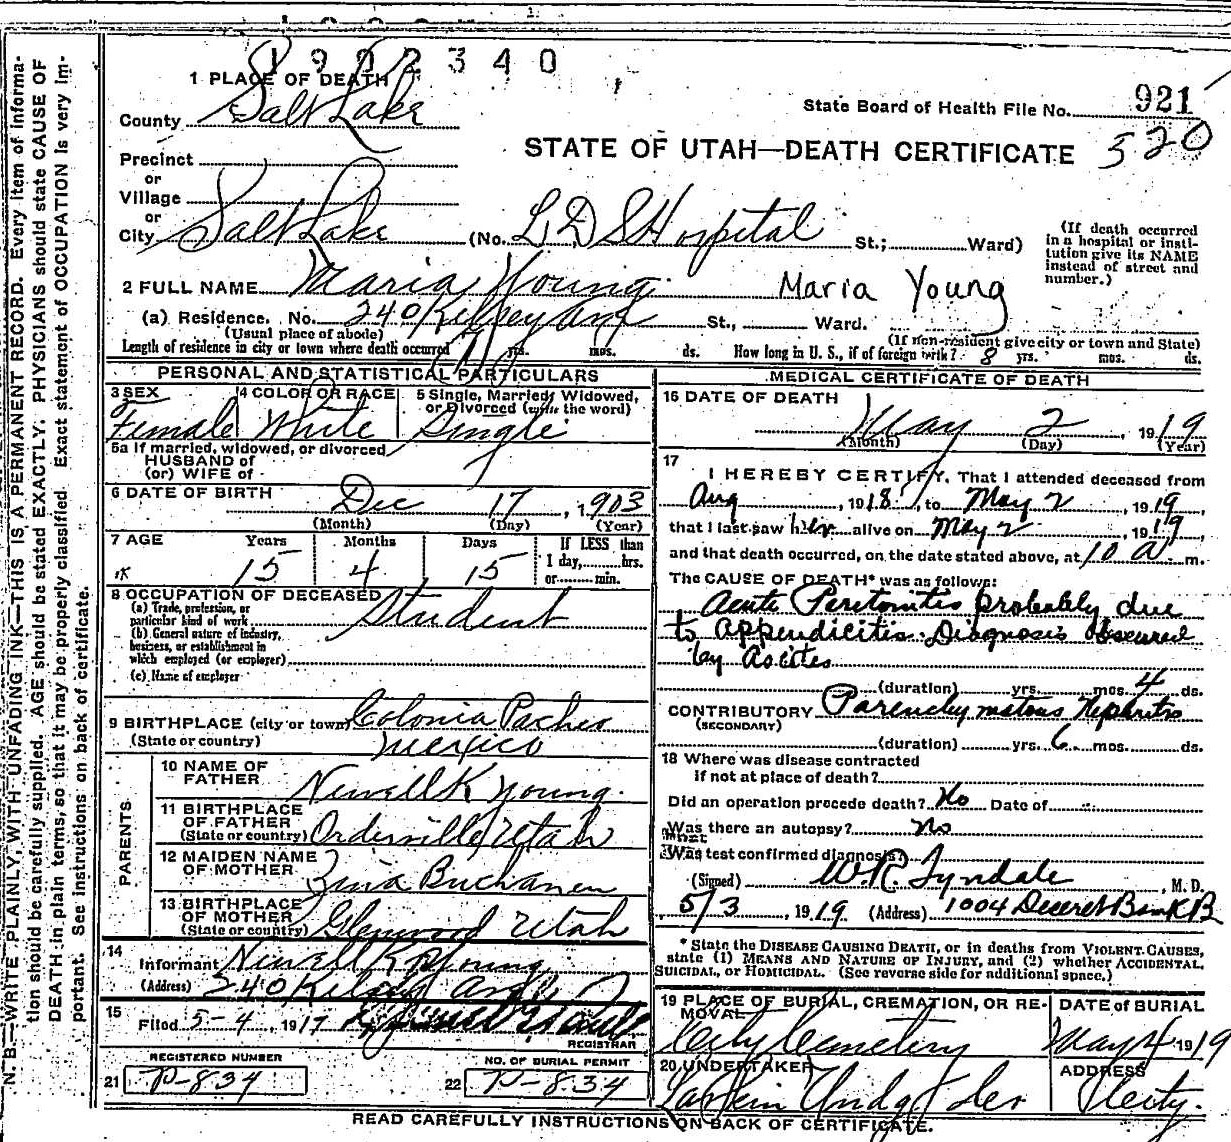 1902340
1 PLACE OF DEATH
State Board of Health File No. 921
County Salt Lake
520
STATE OF UTAH—DEATH CERTIFICATE
Precinct
or
Village
or
City Salt Lake (No. L D S Hospital St.; Ward)
(If death occurred in a hospital or institution give its NAME instead of street and number.)
2 FULL NAME Maria Young Maria Young
(a) Residence. No. 240 Kelsey Ave St., Ward.
(Usual place of abode) (If non-resident give city or town and State)
Length of residence in city or town where death occurred yrs. mos. ds. How long in U. S., if of foreign birth? 8 yrs. mos. ds.
PERSONAL AND STATISTICAL PARTICULARS
3 SEX Female
4 COLOR OR RACE White
5 Single, Married, Widowed, or Divorced (write the word) Single
5a If married, widowed, or divorced
HUSBAND of
(or) WIFE of
6 DATE OF BIRTH Dec 17, 1903
(Month) (Day) (Year)
7 AGE Years Months Days If LESS than
15 4 15 1 day, hrs.
or min.
8 OCCUPATION OF DECEASED
(a) Trade, profession, or particular kind of work Student
(b) General nature of industry, business, or establishment in which employed (or employer)
(c) Name of employer
9 BIRTHPLACE (city or town) Colonia Pacheco
(State or country) Mexico
PARENTS
10 NAME OF FATHER Newell K Young.
11 BIRTHPLACE OF FATHER (State or country) Orderville Utah
12 MAIDEN NAME OF MOTHER Zina Buchanen
13 BIRTHPLACE OF MOTHER (State or country) Glenwood Utah
14 Informant Newell K Young
(Address) 240 Kelsey
15 Filed 5-4, 1917
REGISTRAR
REGISTERED NUMBER
21 P-834
NO. OF BURIAL PERMIT
22 P-834
MEDICAL CERTIFICATE OF DEATH
16 DATE OF DEATH
May 2, 1919
(Month) (Day) (Year)
17
I HEREBY CERTIFY, That I attended deceased from
Aug, 1918, to May 2, 1919,
that I last saw her alive on May 2, 1919
and that death occurred, on the date stated above, at 10 A m.
The CAUSE OF DEATH* was as follows:
Acute Peritonitis probably due
to appendicitis. Diagnosis obscured
by Ascites
(duration) yrs. mos. 4 ds.
CONTRIBUTORY Parenchymatous Nephritis
(SECONDARY)
(duration) yrs. 6 mos. ds.
18 Where was disease contracted
if not at place of death?
Did an operation precede death? No Date of
Was there an autopsy? No
What test confirmed diagnosis?
(Signed) W. R. Tyndale, M. D.
5/3, 1919 (Address) 1004 Deseret Bank B
*State the DISEASE CAUSING DEATH, or in deaths from VIOLENT CAUSES,
state (1) MEANS AND NATURE OF INJURY, and (2) whether ACCIDENTAL,
SUICIDAL, or HOMICIDAL. (See reverse side for additional space.)
19 PLACE OF BURIAL, CREMATION, OR REMOVAL
City Cemetery
DATE of BURIAL
May 4 1919
20 UNDERTAKER
Larkin Undg
ADDRESS
City.
READ CAREFULLY INSTRUCTIONS ON BACK OF CERTIFICATE.
N. B.—WRITE PLAINLY, WITH UNFADING INK—THIS IS A PERMANENT RECORD. Every item of informa-
tion should be carefully supplied. AGE should be stated EXACTLY. PHYSICIANS should state CAUSE OF
DEATH in plain terms, so that it may be properly classified. Exact statement of OCCUPATION is very im-
portant. See instructions on back of certificate.